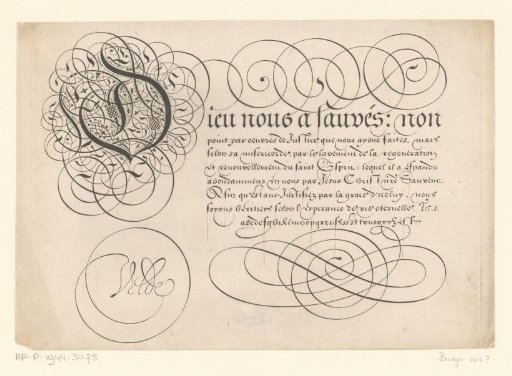 Dieu nous a sauvés: non
point par oeuvres de Justice que nous ayons faites, mais
selon sa misericorde, par le lavement de la regeneration
et renouvellement du saint Esprit: lequel il a espandu
abondamment en nous par Jesus Christ nostre Sauveur.
Afin qu'estans Justifiez par la grace d'iceluy, nous
soyons heritiers selon l'esperance de vie eternelle. Tit. 3.
Velde
RP-P-1944-3075